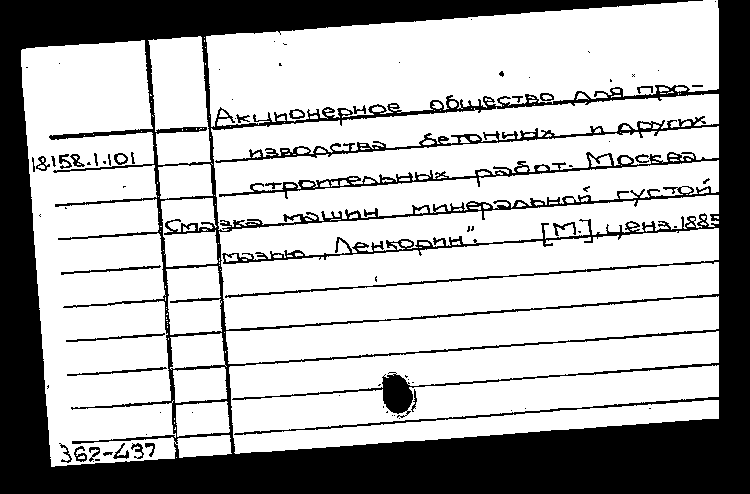 Акционерное общество для про-
изводства бетонных и других
18.158.1.101
строительных работ. Москва.
Смазка машин минеральной густой
мазью „Ленкорин". [М.], ценз. 1885
362-437